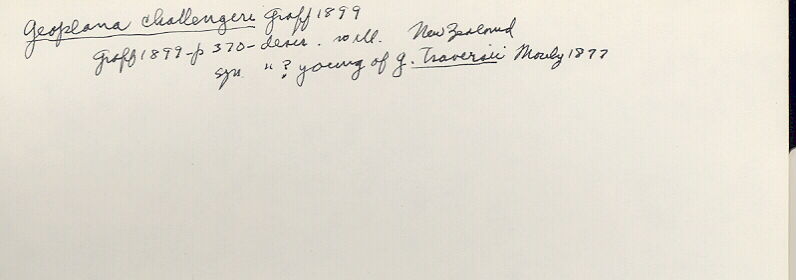 Geoplana challengeri Graff 1899
Graff 1899-p 370-descr. no ill. New Zealand
syn "? young of G. Traversii Mosely 1877